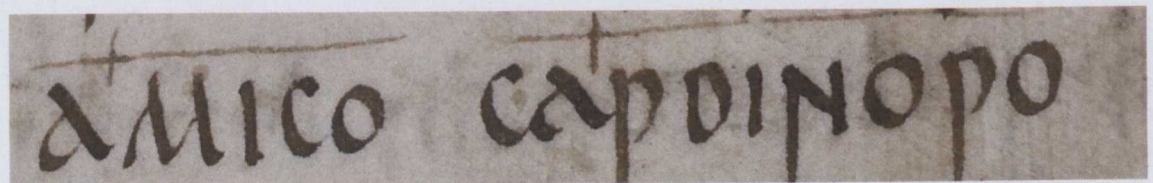 AMICO CAPDINOPO